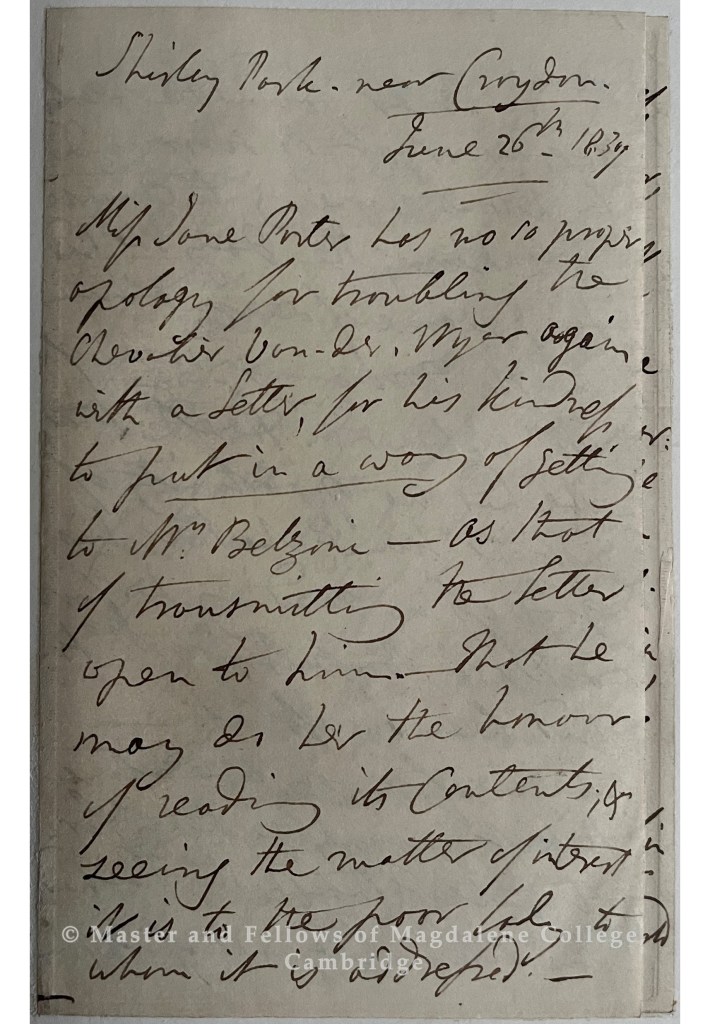 Shirley Park - near Croydon.
June 26th - 1839
Miss Jane Porter has no so proper
apology for troubling the
Chevalier Van-der. Wyer again
with a Letter, for his kindness
to put in a way of getting
to Mrs. Belzoni — as that
of transmitting the Letter
open to him. — that he
may do her the honour
of reading its Contents; &
seeing the matter of interest
it is to the poor lady to
whom it is addressed. —
© Master and Fellows of Magdalene College
Cambridge